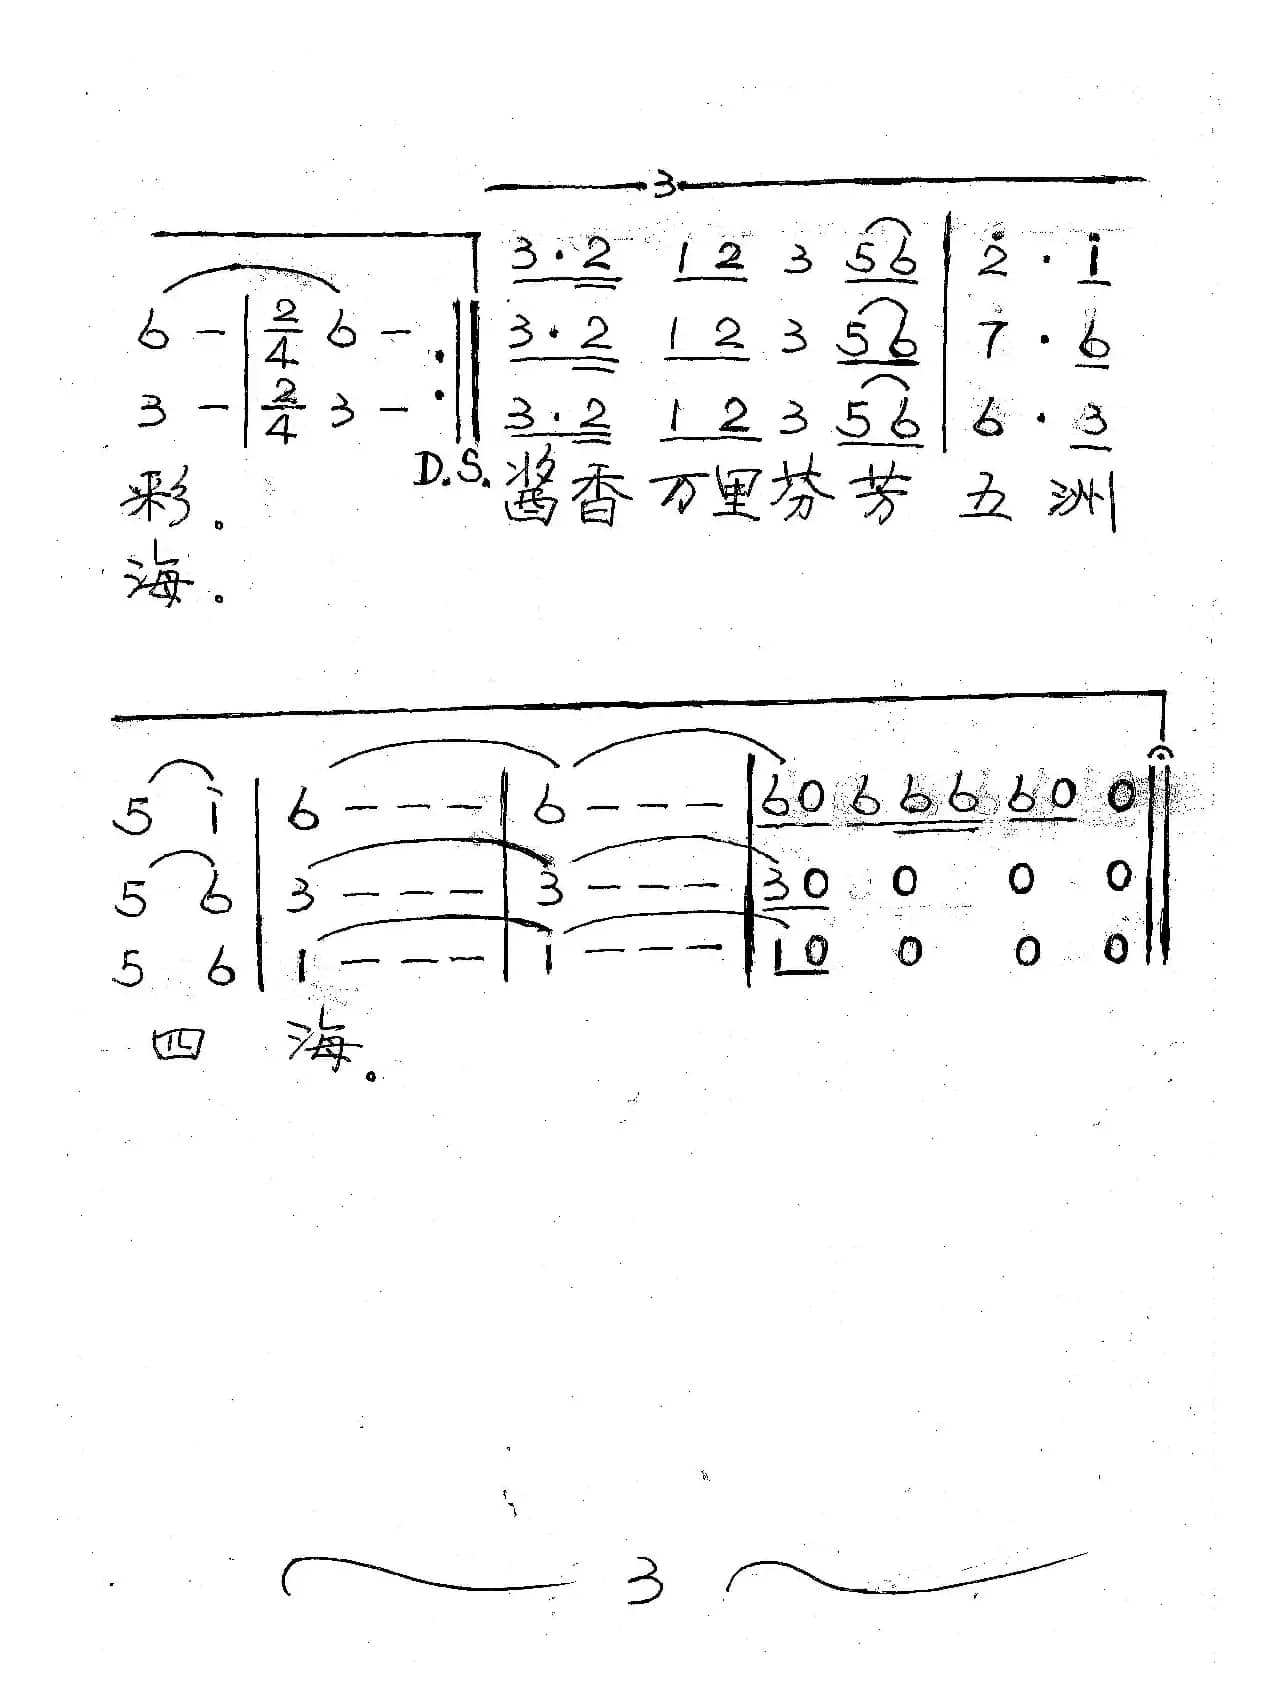 3
3·2 1 2 3 5 6 | 2̇ · 1̇
6 – | 2/4 6 – :‖ 3·2 1 2 3 5 6 | 7 · 6
3 – | 2/4 3 – :‖ 3·2 1 2 3 5 6 | 6 · 3
彩。 D.S. 酱香 万里芬芳 五洲
海。
5 1̇ | 6 – – – | 6 – – – | 6 0 6 6 6 6 0 0 ‖
5 6 | 3 – – – | 3 – – – | 3 0 0 0 0 ‖
5 6 | 1 – – – | 1 – – – | 1 0 0 0 0 ‖
四 海。
3